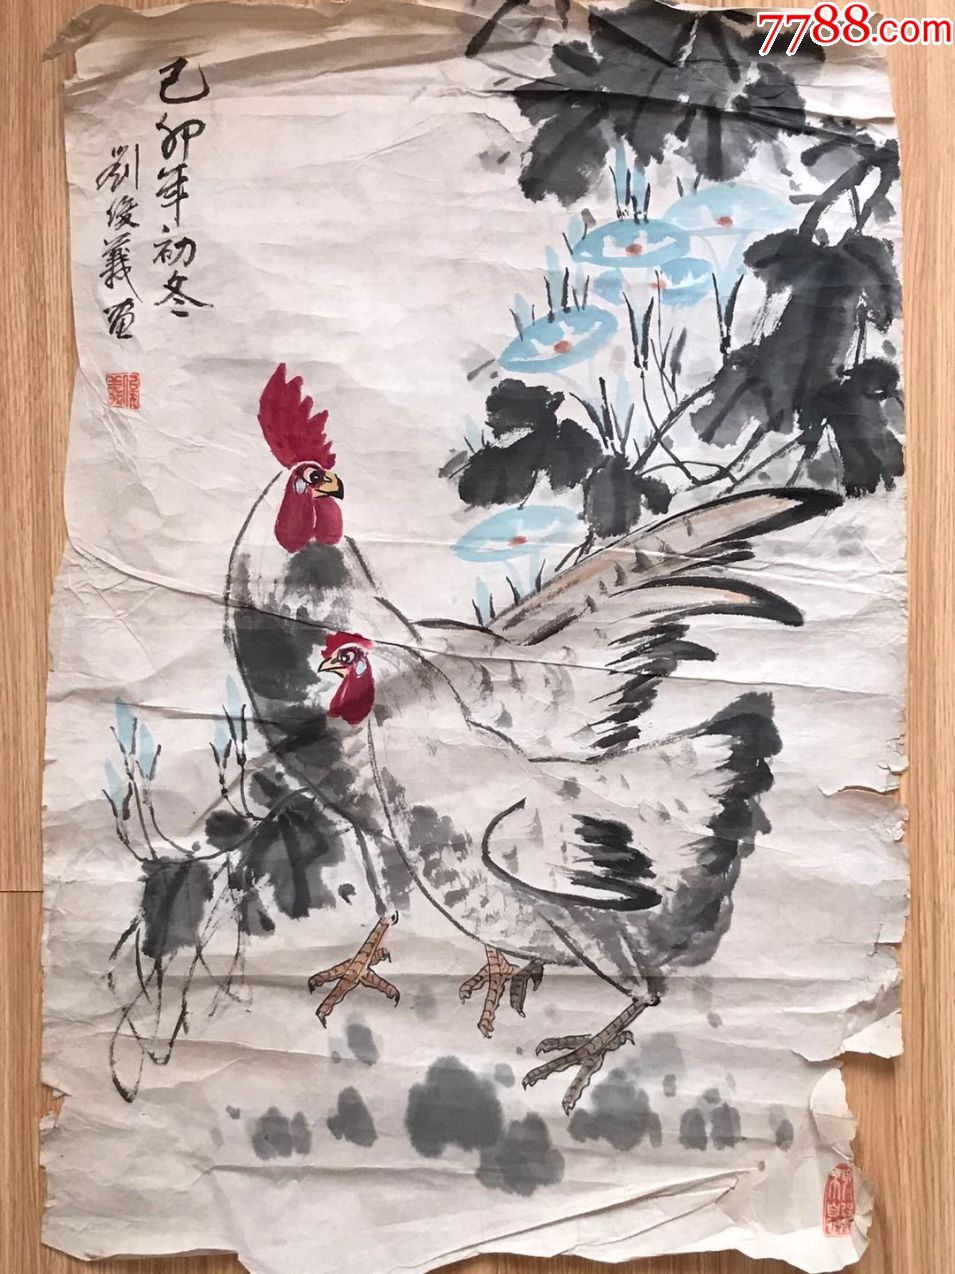 7788.com
己卯年初冬
劉俊義画